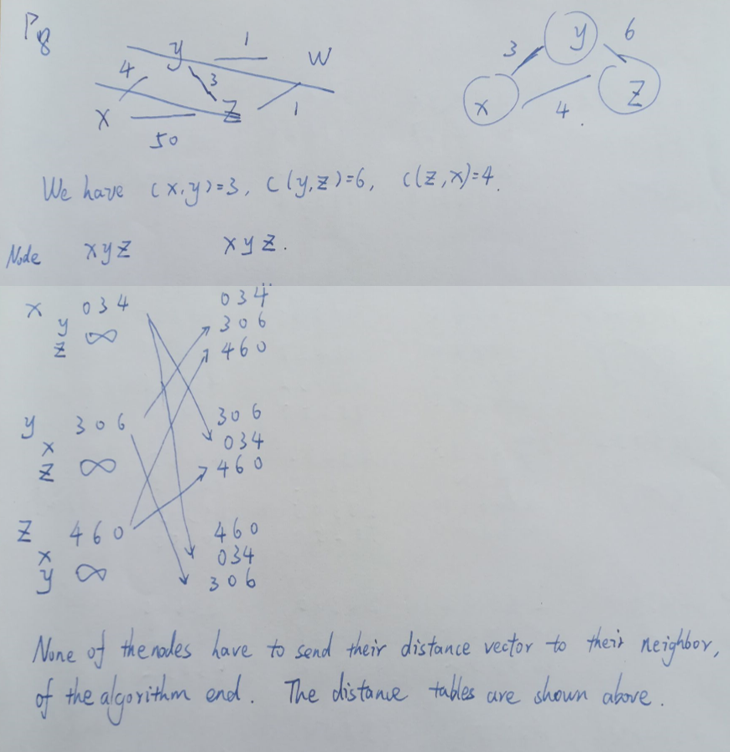 P8
y 1 w
4 3
x z 1
50
y 6
3
x z
4
We have c x,y)=3, c(y,z)=6, c(z,x)=4.
Node x y z x y z.
x 0 3 4 0 3 4
y 3 0 6
z ∞ 4 6 0
y 3 0 6 3 0 6
x 0 3 4
z ∞ 4 6 0
z 4 6 0 4 6 0
x 0 3 4
y ∞ 3 0 6
None of thenodes have to send their distance vector to their neighbor,
of the algorithm end. The distance tables are shown above.